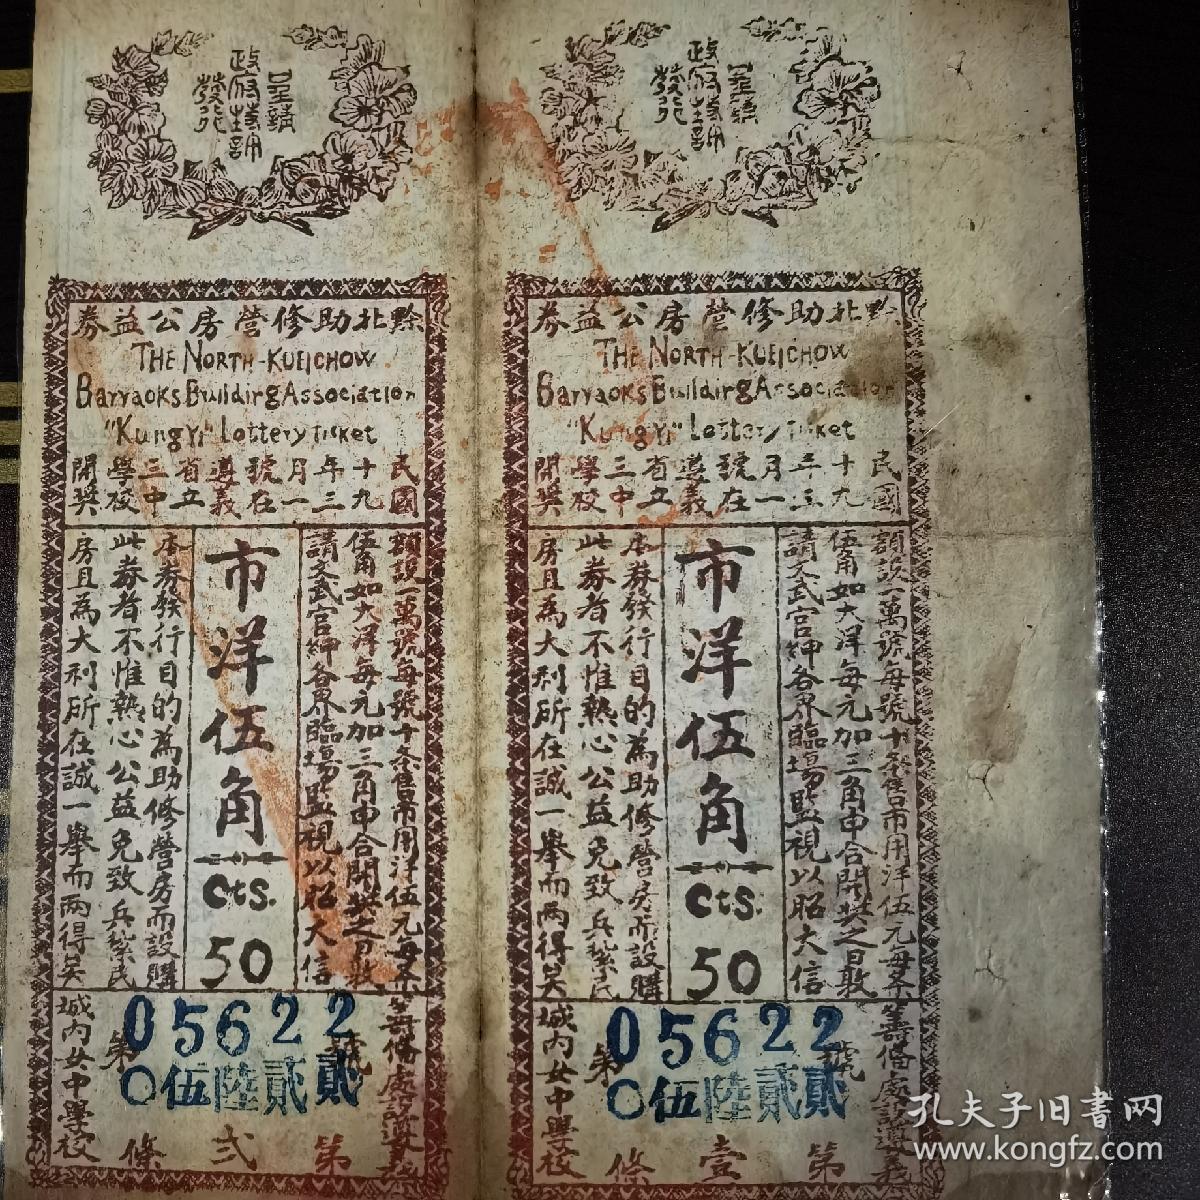 呈請
政府
發行
黔北助修營房公益券
THE NORTH-KUEICHOW
Barraoks Building Association
"Kung Yi" Lottery Ticket
民國十九年三月一號在遵義省立三中學校開獎
額設一萬號每號十条售市用洋伍元每条
伍角如大洋每元加三角申合開獎之日敦
請文武官紳各界臨場監視以昭大信
市洋伍角
Cts.
50
本券發行目的為助修營房而設購
此券者不惟熱心公益免致兵紮民
房且為大利所在誠一舉而兩得矣
籌備處設遵義
第 號
05622
〇伍陸貳貳
城内女中學校
第壹條
呈請
政府
發行
黔北助修營房公益券
THE NORTH-KUEICHOW
Barraoks Building Association
"Kung Yi" Lottery Ticket
民國十九年三月一號在遵義省立三中學校開獎
額設一萬號每號十条售市用洋伍元每条
伍角如大洋每元加三角申合開獎之日敦
請文武官紳各界臨場監視以昭大信
市洋伍角
Cts.
50
本券發行目的為助修營房而設購
此券者不惟熱心公益免致兵紮民
房且為大利所在誠一舉而兩得矣
籌備處設遵義
第 號
05622
〇伍陸貳貳
城内女中學校
第弍條
孔夫子旧书网
www.kongfz.com